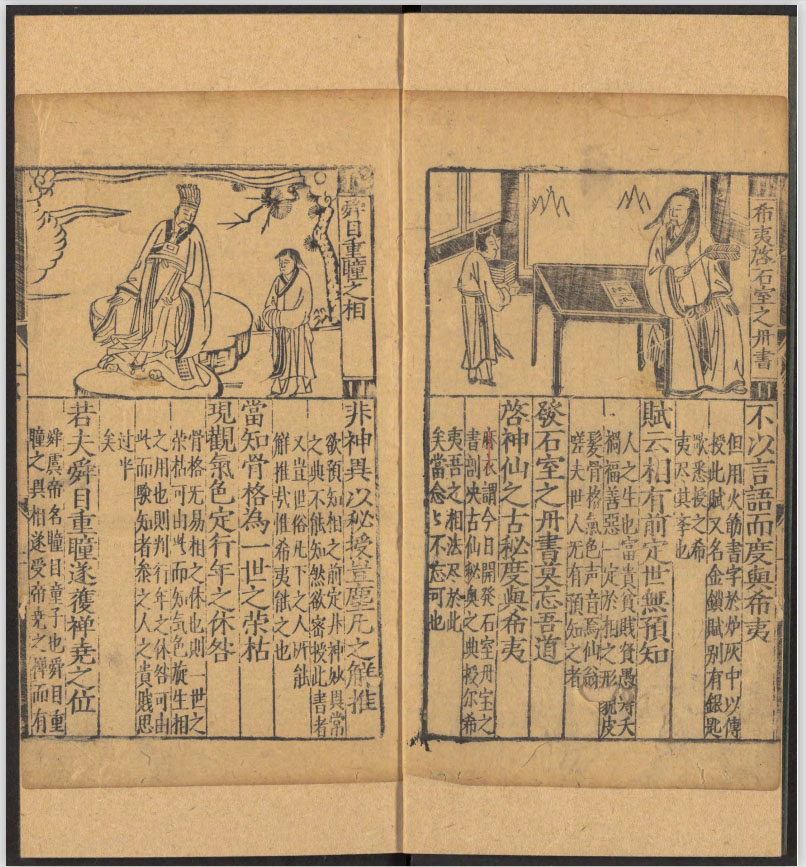 希夷啓石室之丹書
不以言語而度與希夷
但用火筯書字於炉灰中以傳
授此賦又名金鎖賦别有銀匙
歌悉授之希
夷尽其也
賦云相有前定世無預知
人之生也富貴貧賤賢愚寿夭
禍福善惡一定於相之形皃皮
髮骨格氣色声音焉仙翁
嗟夫世人无有預知之者
發石室之丹書莫忘吾道
啓神仙之古秘度與希夷
麻衣謂今日開発石室丹室之
書剖决古仙秘奥之典授尔希
夷吾之相法尽於此
矣當念之不忘可也
舜目重瞳之相
非神異以秘授豈塵凡之解推
欲預知相之前定非神妙異常
之典不能知然欲密授此書者
又豈世俗凡下之人所能
解推哉惟希夷能之也
當知骨格為一世之荣枯
現觀氣色定行年之休咎
骨格无易相之休也則一世之
荣枯可由此而知氣色旋生相
之用也則判行年之休咎可由
此而驗知者叅之人之貴賤思
过半
矣
若夫舜目重瞳遂獲禅尭之位
舜虞帝名瞳目童子也舜目重
瞳之異相遂受帝尭之禅而有